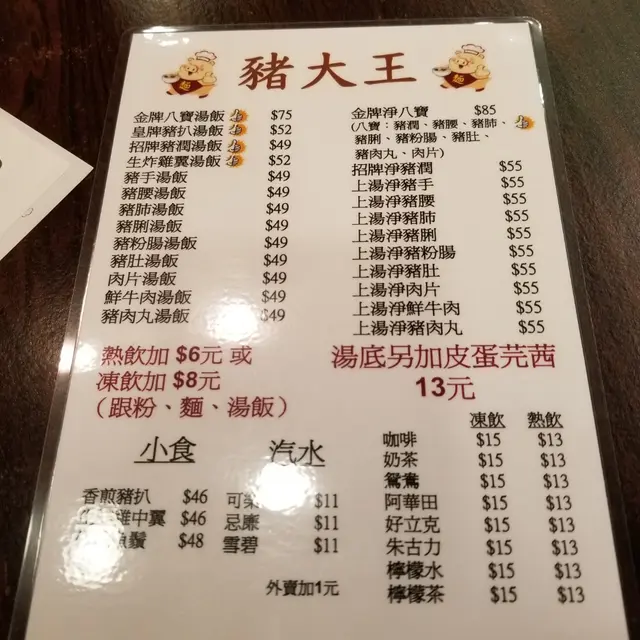 豬大王
金牌八寶湯飯 $75
皇牌豬扒湯飯 $52
招牌豬潤湯飯 $49
生炸雞翼湯飯 $52
豬手湯飯 $49
豬腰湯飯 $49
豬肺湯飯 $49
豬脷湯飯 $49
豬粉腸湯飯 $49
豬肚湯飯 $49
肉片湯飯 $49
鮮牛肉湯飯 $49
豬肉丸湯飯 $49
金牌淨八寶 $85
(八寶：豬潤、豬腰、豬肺、
豬脷、豬粉腸、豬肚、
豬肉丸、肉片)
招牌淨豬潤 $55
上湯淨豬手 $55
上湯淨豬腰 $55
上湯淨豬肺 $55
上湯淨豬脷 $55
上湯淨豬粉腸 $55
上湯淨豬肚 $55
上湯淨肉片 $55
上湯淨鮮牛肉 $55
上湯淨豬肉丸 $55
熱飲加 $6元 或
凍飲加 $8元
（跟粉、麵、湯飯）
湯底另加皮蛋芫茜
13元
小食
香煎豬扒 $46
雞中翼 $46
魚鬚 $48
汽水
可樂 $11
忌廉 $11
雪碧 $11
外賣加1元
凍飲 熱飲
咖啡 $15 $13
奶茶 $15 $13
鴛鴦 $15 $13
阿華田 $15 $13
好立克 $15 $13
朱古力 $15 $13
檸檬水 $15 $13
檸檬茶 $15 $13